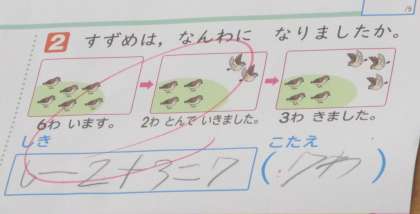 2 すずめは，なんわに なりましたか。
6わ います。 2わ とんで いきました。 3わ きました。
しき こたえ
6-2+3=7 (7わ)